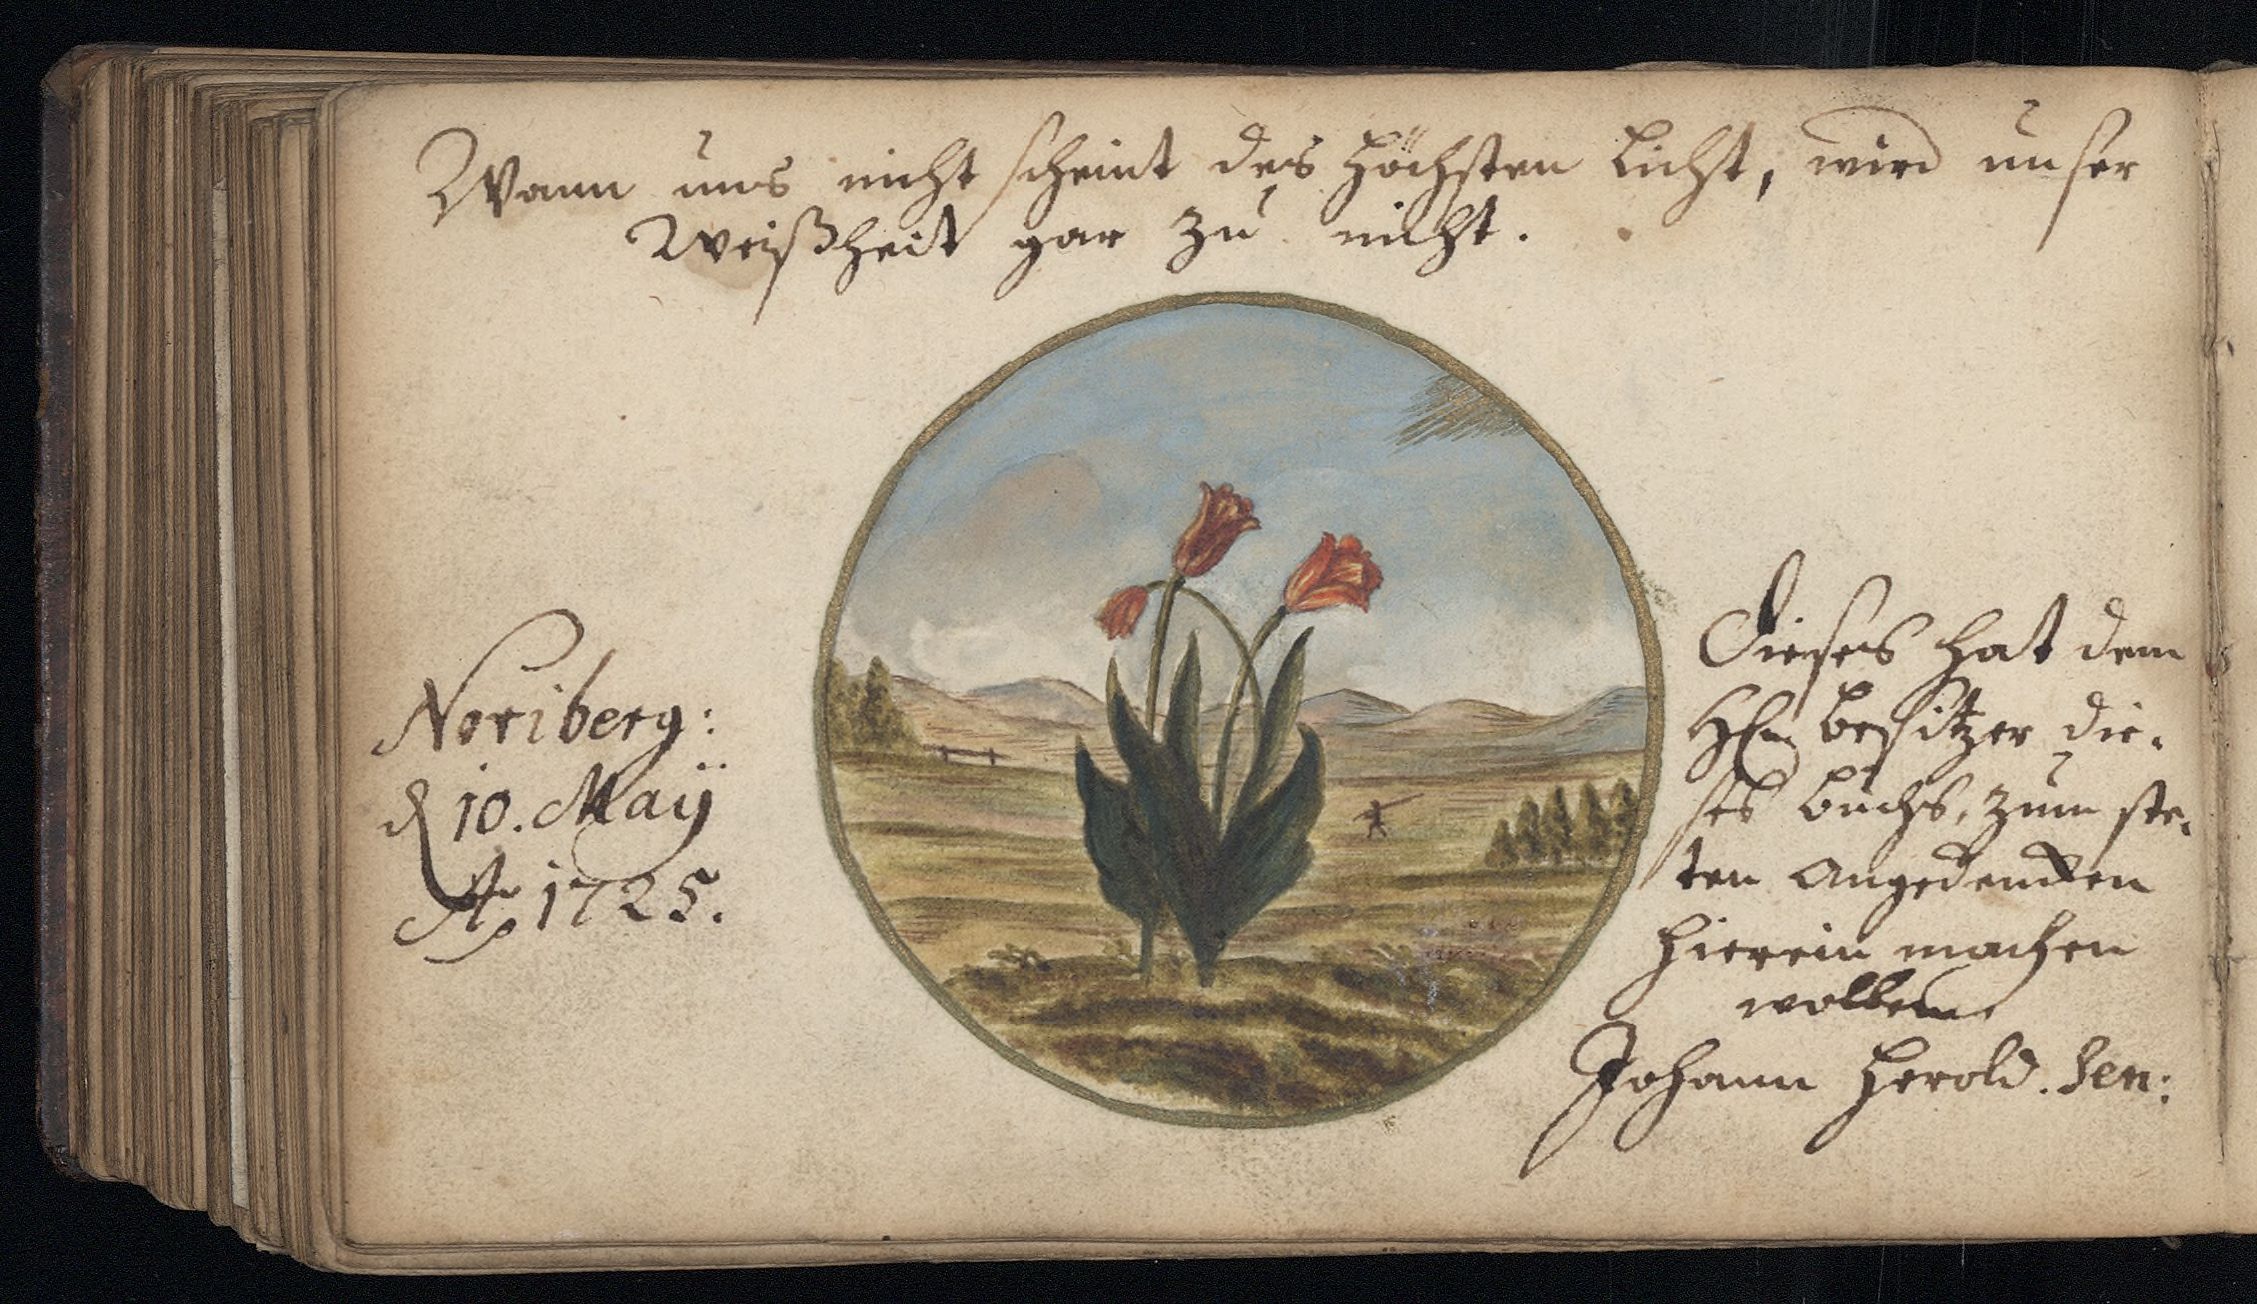 Wann uns nicht scheint des Höchsten Licht, wird unser
Weißheit gar zu nicht.
Noriberg:
d 10. Maÿ
Ao 1725.
Dieses hat dem
Hn besitzer die-
ses buchs, zum ste-
ten Angedencken
hierein machen
wollen.
Johann Herold. Sen: